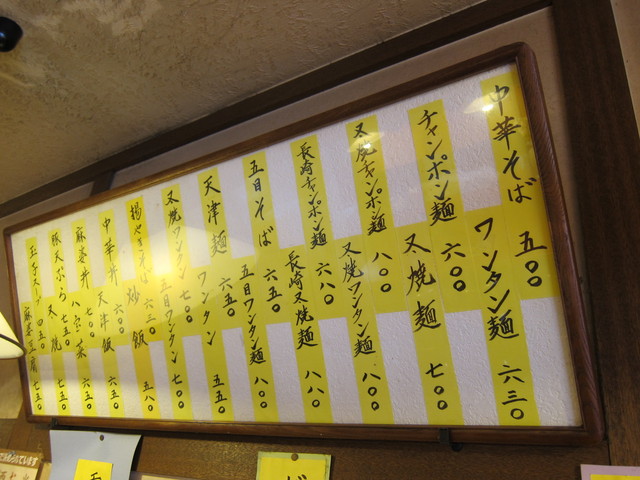 中華そば 五〇〇
ワンタン麺 六三〇
チャンポン麺 六〇〇
叉焼麺 七〇〇
叉焼チャンポン麺 八〇〇
叉焼ワンタン麺 八〇〇
長崎チャンポン麺 六八〇
長崎叉焼麺 八八〇
五目そば 六五〇
五目ワンタン麺 八〇〇
天津麺 六五〇
ワンタン 五五〇
叉焼ワンタン 七〇〇
五目ワンタン 七〇〇
揚やきそば 六三〇
炒飯 五八〇
中華丼 六〇〇
天津飯 六五〇
麻婆丼 七〇〇
八宝菜 六五〇
豚天ぷら 七五〇
叉焼 七五〇
玉子スープ 四五〇
麻婆豆腐 七五〇